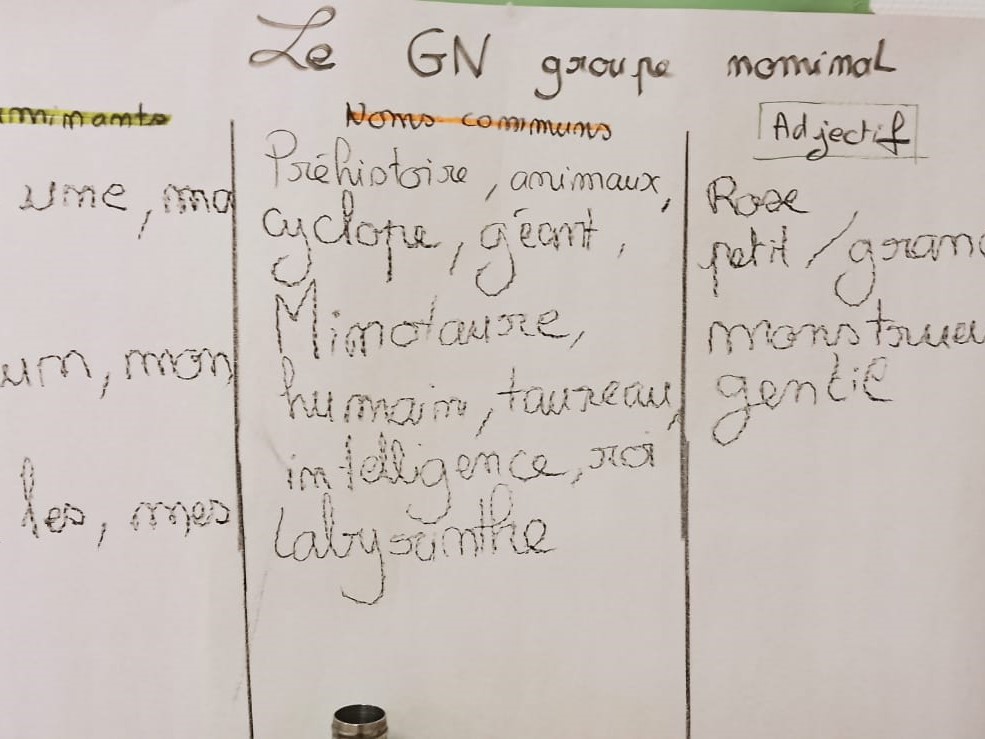 Le GN groupe nominal
minants Noms communs Adjectif
une, ma
un, mon
les, mes
Préhistoire, animaux,
cyclope, géant,
Minotaure,
humain, taureau,
intelligence, roi
labyrinthe
Rose,
petit / gran
monstrueu
gentil